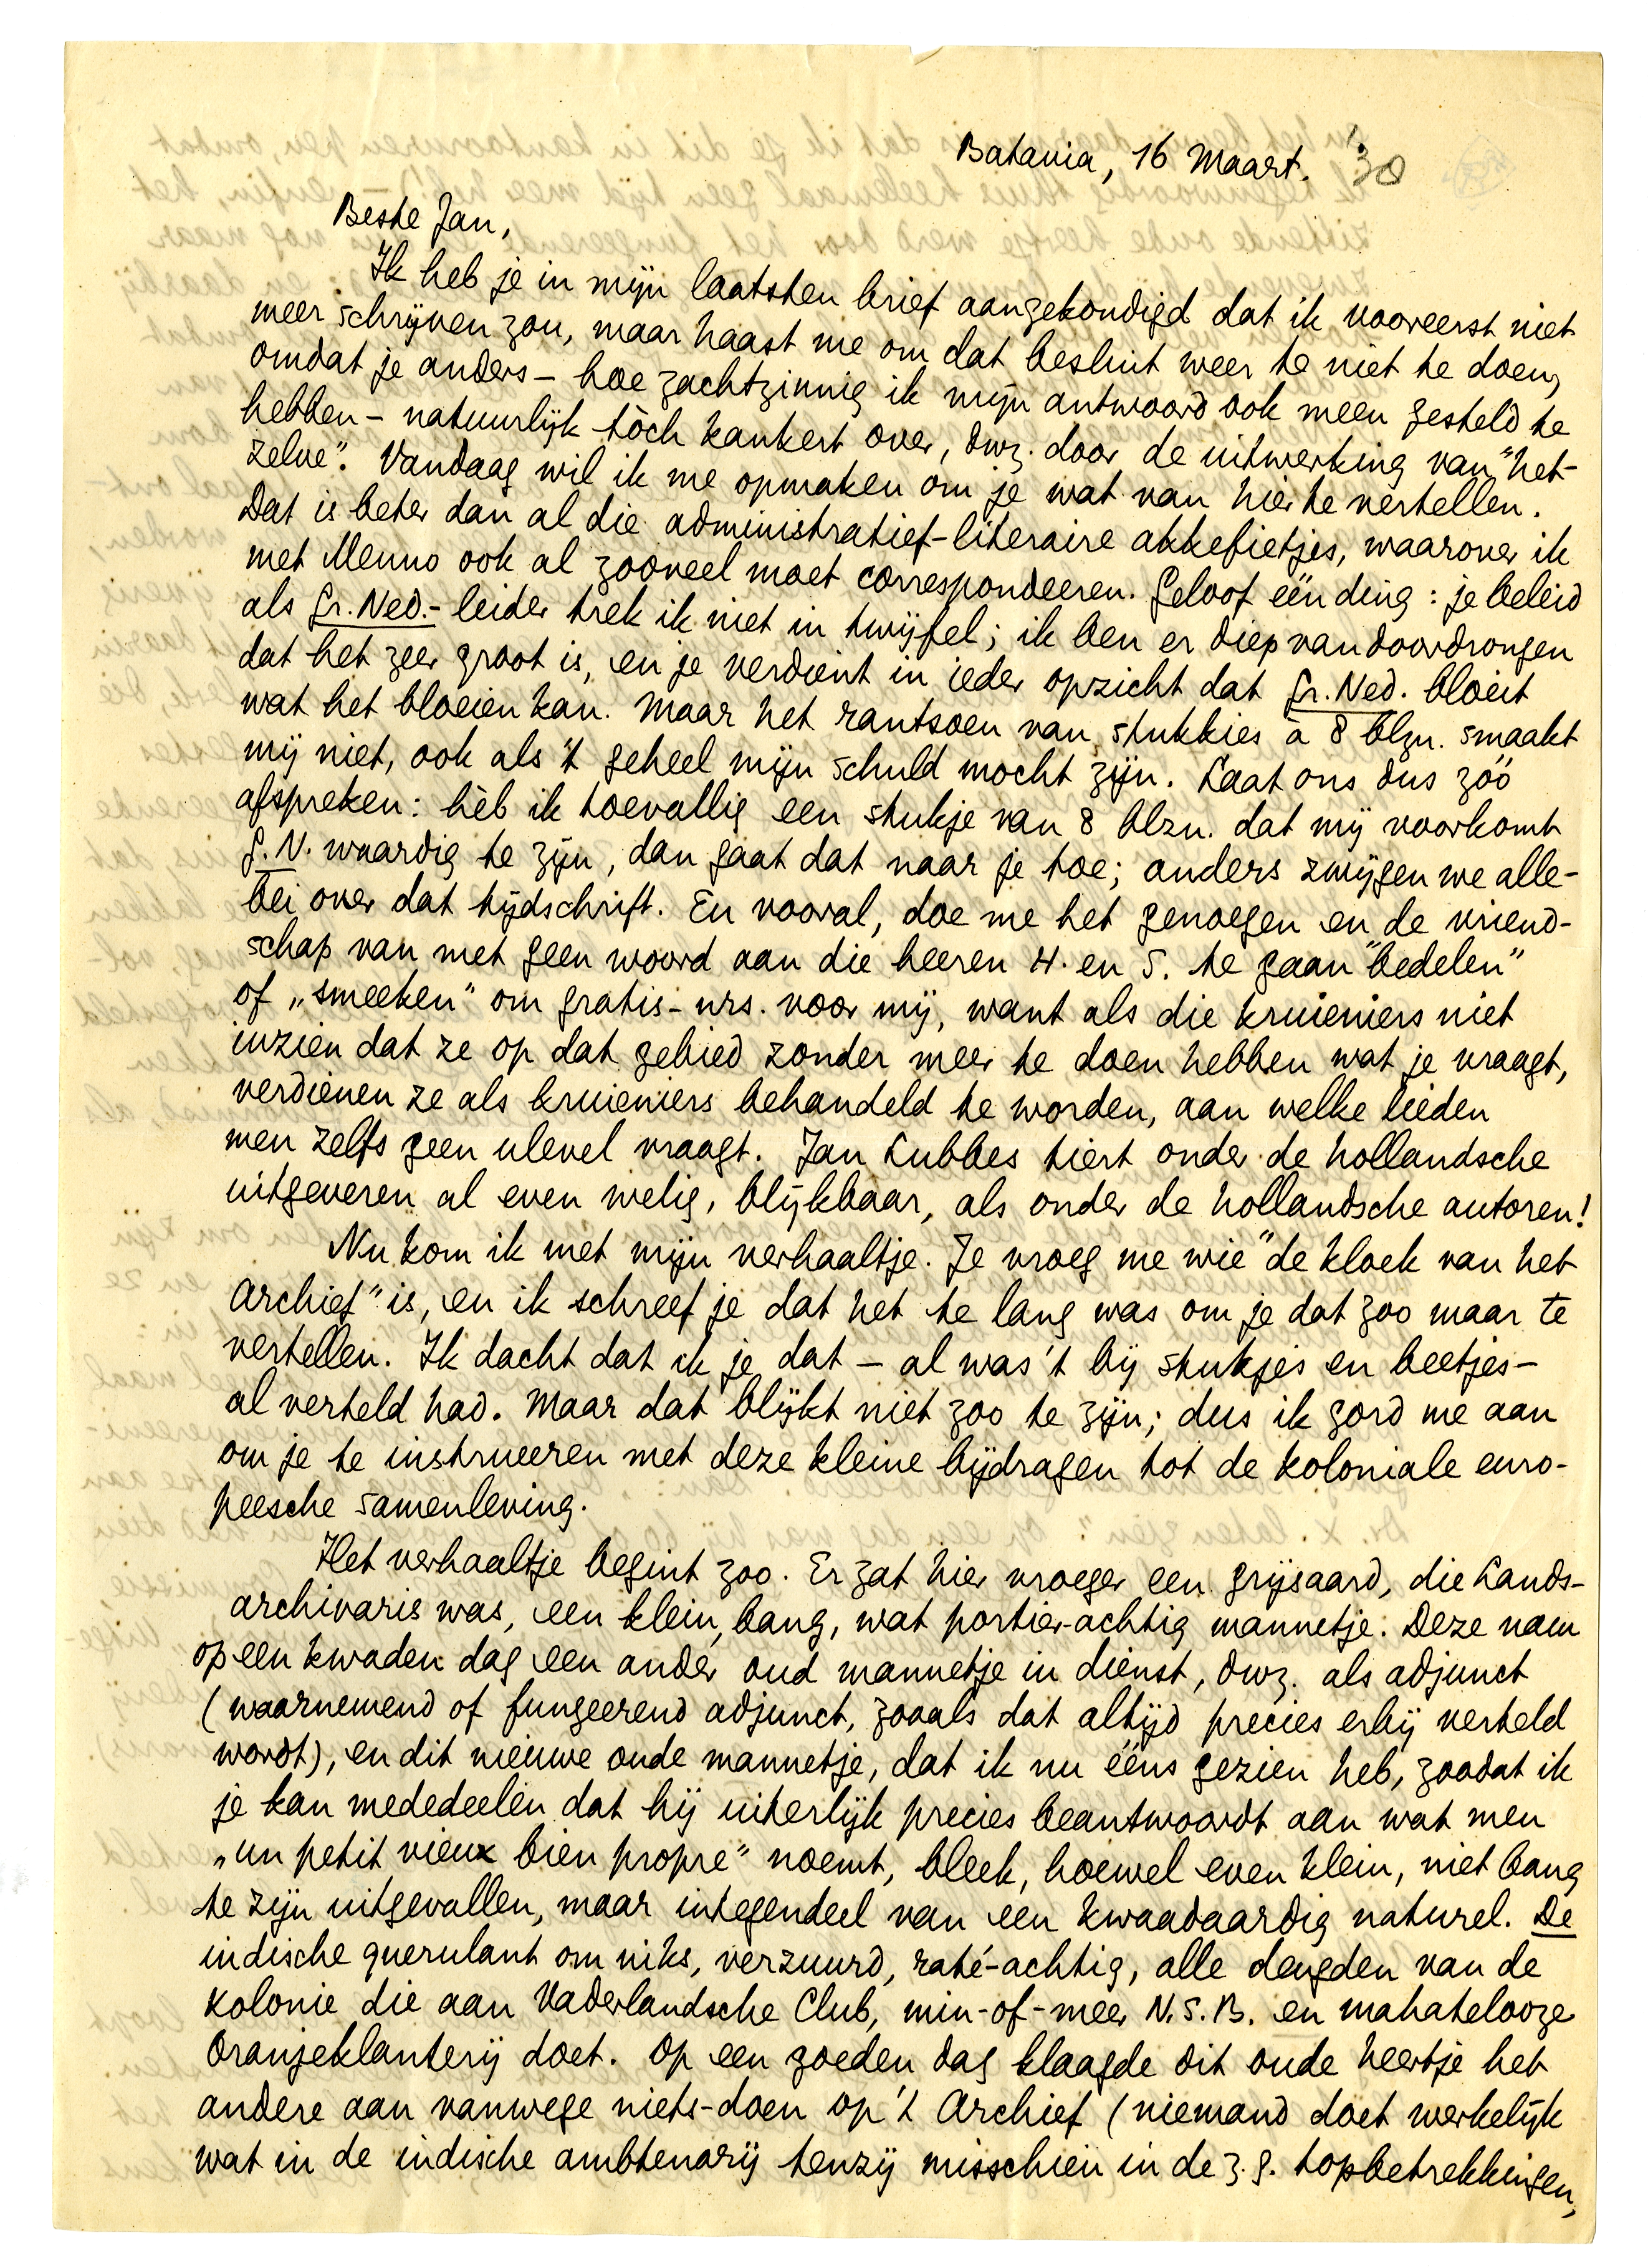 Batavia, 16 Maart. '30
Beste Jan,
Ik heb je in mijn laatsten brief aangekondigd dat ik vooreerst niet
meer schrijven zou, maar haast me om dat besluit weer te niet te doen,
omdat je anders – hoe zachtzinnig ik mijn antwoord ook meen gesteld te
hebben – natuurlijk tòch kankert over, dwz. door de uitwerking van "het-
zelve". Vandaag wil ik me opmaken om je wat van hier te vertellen.
Dat is beter dan al die administratief-literaire akkefietjes, waarover ik
met Menno ook al zooveel moet correspondeeren. Geloof één ding: je beleid
als Gr. Ned.-leider trek ik niet in twijfel; ik ben er diep van doordrongen
dat het zeer groot is, en je verdient in ieder opzicht dat Gr. Ned. bloeit
wat het bloeien kan. Maar het rantsoen van stukkies à 8 blzn. smaakt
mij niet, ook als 't geheel mijn schuld mocht zijn. Laat ons dus zóó
afspreken: hèb ik toevallig een stukje van 8 blzn. dat mij voorkomt
G.N. waardig te zijn, dan gaat dat naar je toe; anders zwijgen we alle-
bei over dat tijdschrift. En vooral, doe me het genoegen en de vriend-
schap van met geen woord aan die heeren H. en S. te gaan "bedelen"
of „smeeken" om gratis-nrs. voor mij, want als die kruieniers niet
inzien dat ze op dat gebied zonder meer te doen hebben wat je vraagt,
verdienen ze als kruieniers behandeld te worden, aan welke lieden
men zelfs geen ulevel vraagt. Jan Lubbes tiert onder de hollandsche
uitgeveren al even welig, blijkbaar, als onder de hollandsche autoren!
Nu kom ik met mijn verhaaltje. Je vroeg me wie "de kloek van het
Archief" is, en ik schreef je dat het te lang was om je dat zoo maar te
vertellen. Ik dacht dat ik je dat – al was 't bij stukjes en beetjes –
al verteld had. Maar dat blijkt niet zoo te zijn; dus ik gord me aan
om je te instrueeren met deze kleine bijdragen tot de koloniale euro-
peesche samenleving.
Het verhaaltje begint zoo. Er zat hier vroeger een grijsaard, die Lands-
archivaris was, een klein, bang, wat portier-achtig mannetje. Deze nam
op een kwaden dag een ander oud mannetje in dienst, dwz. als adjunct
(waarnemend of fungeerend adjunct, zooals dat altijd precies erbij verteld
wordt), en dit nieuwe oude mannetje, dat ik nu ééns gezien heb, zoodat ik
je kan mededeelen dat hij uiterlijk precies beantwoordt aan wat men
„un petit vieux bien propre" noemt, bleek, hoewel even klein, niet bang
te zijn uitgevallen, maar integendeel van een kwaadaardig naturel. De
indische querulant om niks, verzuurd, raté-achtig, alle deugden van de
kolonie die aan Vaderlandsche Club, min-of-meer N.S.B. en mahatelooze
Oranjeklanterij doet. Op een goeden dag klaagde dit oude heertje het
andere aan vanwege niets-doen op 't Archief (niemand doet werkelijk
wat in de indische ambtenarij tenzij misschien in de z.g. topbetrekkingen,